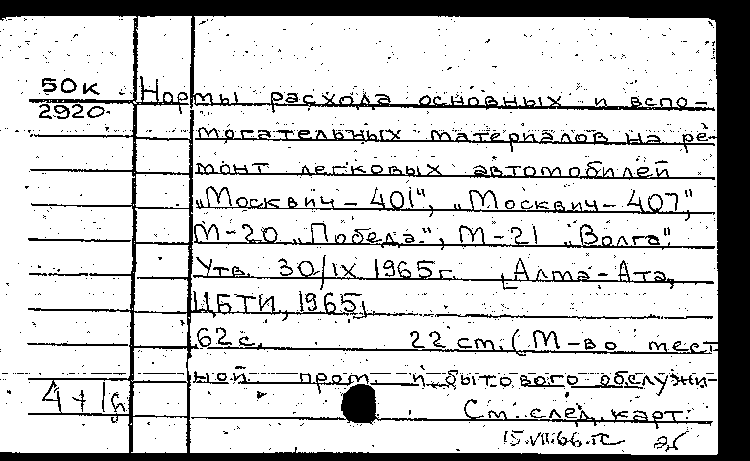 50к
2920
Нормы расхода основных и вспо-
могательных материалов на ре-
монт легковых автомобилей
„Москвич-401", „Москвич-407",
М-20 „Победа", М-21 „Волга".
Утв. 30/IX 1965г. [Алма-Ата,
ЦБТИ, 1965]
62с. 22 см. (М-во мест
ной пром. и бытового обслужи-
4+1
См. след. карт.
15.VII.66.